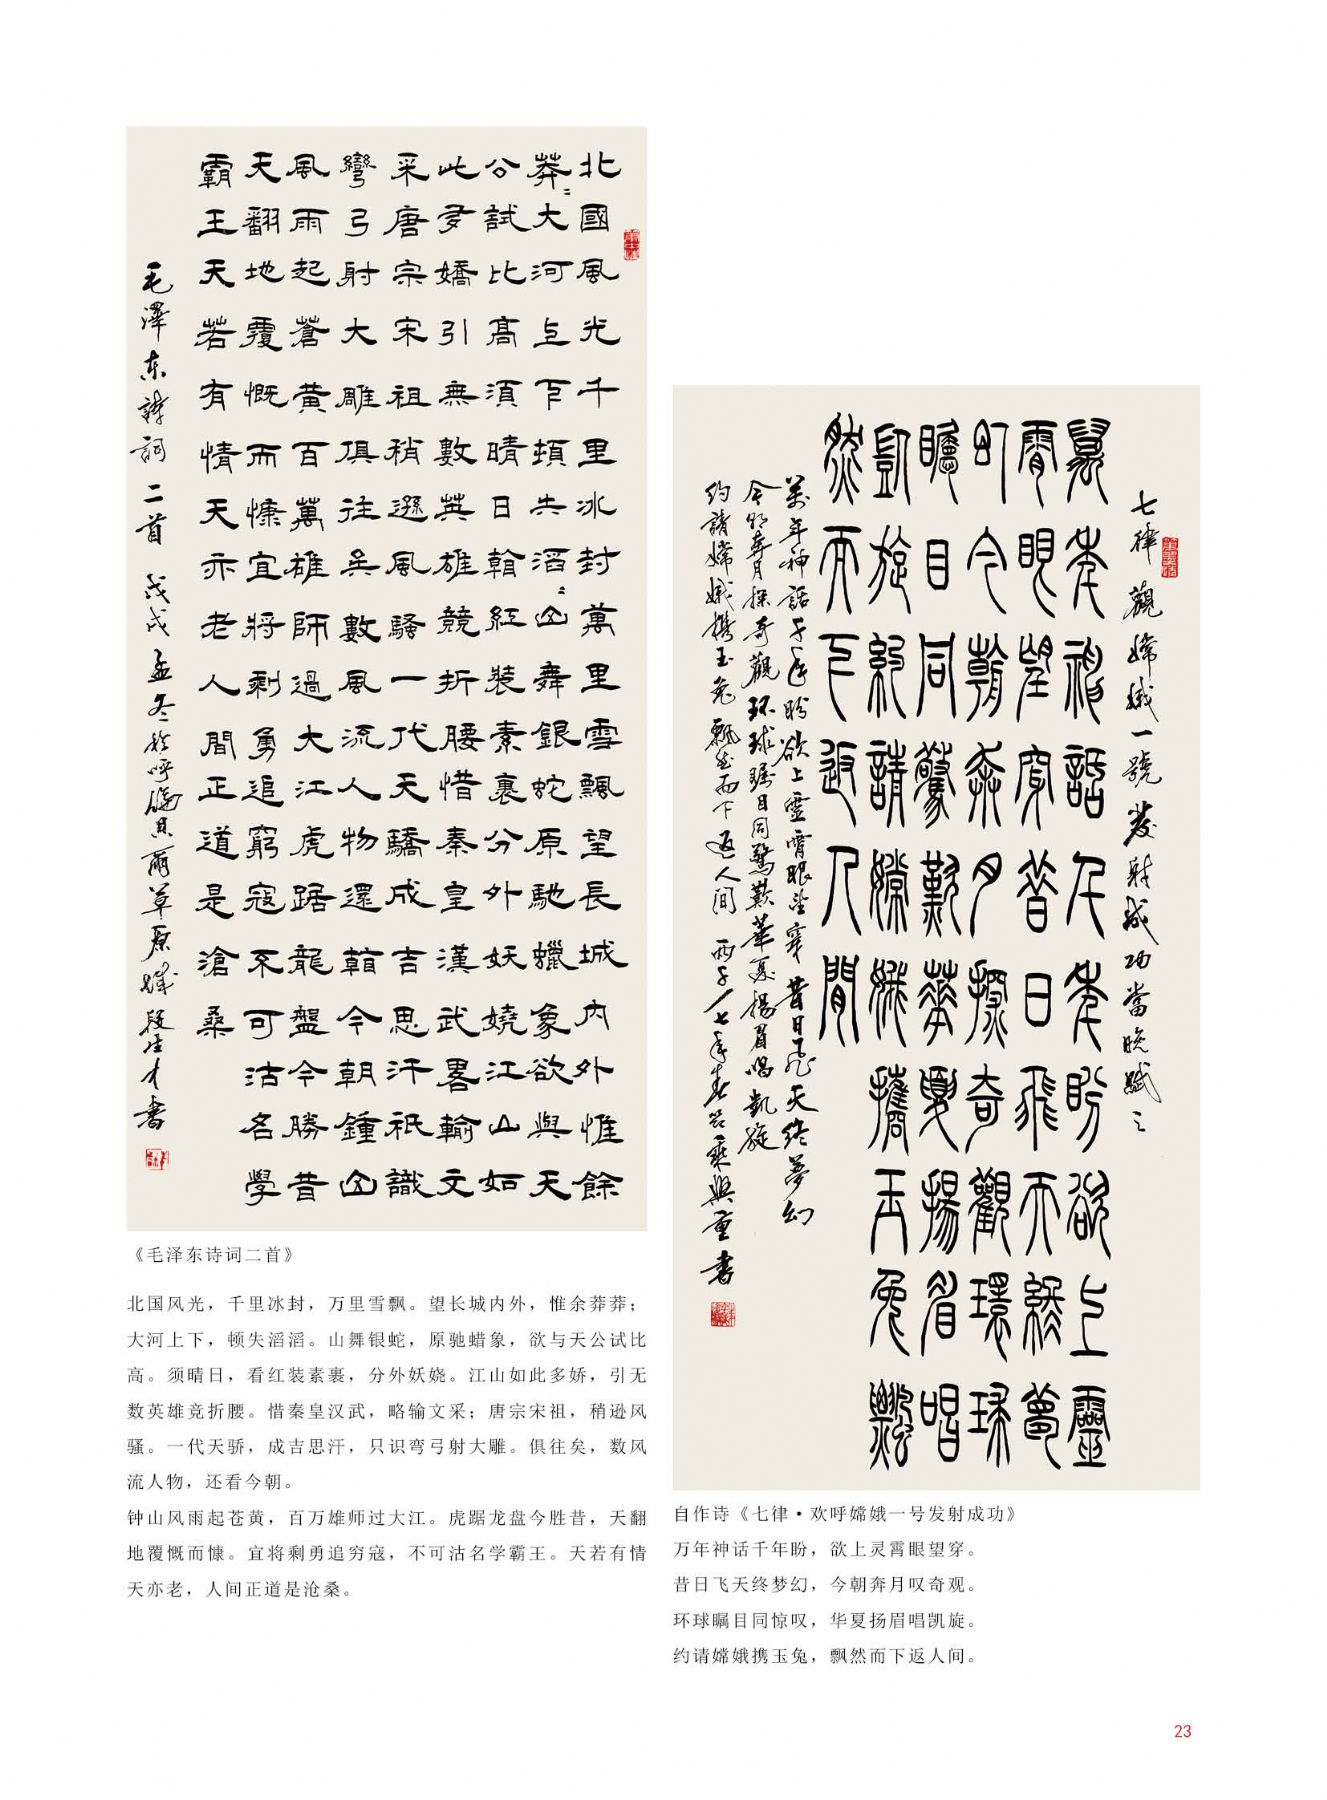 北國風光千里冰封萬里雪飄望長城内外惟餘
莽〻大河上下頓失滔〻山舞銀蛇原馳蠟象欲與天
公試比高須晴日看紅裝素裹分外妖嬈江山如
此多嬌引無數英雄競折腰惜秦皇漢武畧輸文
采唐宗宋祖稍遜風騷一代天驕成吉思汗祇識
彎弓射大雕俱往矣數風流人物還看今朝鐘山
風雨起蒼黃百萬雄師過大江虎踞龍盤今勝昔
天翻地覆慨而慷宜將剩勇追窮寇不可沽名學
霸王天若有情天亦老人間正道是滄桑
毛澤東詩詞二首 戊戌孟冬於呼倫貝爾草原城段生才書
《毛泽东诗词二首》
北国风光，千里冰封，万里雪飘。望长城内外，惟余莽莽；
大河上下，顿失滔滔。山舞银蛇，原驰蜡象，欲与天公试比
高。须晴日，看红装素裹，分外妖娆。江山如此多娇，引无
数英雄竞折腰。惜秦皇汉武，略输文采；唐宗宋祖，稍逊风
骚。一代天骄，成吉思汗，只识弯弓射大雕。俱往矣，数风
流人物，还看今朝。
钟山风雨起苍黄，百万雄师过大江。虎踞龙盘今胜昔，天翻
地覆慨而慷。宜将剩勇追穷寇，不可沽名学霸王。天若有情
天亦老，人间正道是沧桑。
七律觀嫦娥一號發射成功當晚賦之
萬年神話千年盼欲上靈
霄眼望穿昔日飛天終夢
幻今朝奔月探奇觀環球
矚目同驚歎華夏揚眉唱
凱旋約請嫦娥攜玉兔飄
然而下返人間
萬年神話千年盼欲上靈霄眼望穿昔日飛天終夢幻
今朝奔月探奇觀环球瞩目同驚歎華夏揚眉唱凱旋
約請嫦娥攜玉兔飄然而下返人间 一七年春 乘興重書
自作诗《七律·欢呼嫦娥一号发射成功》
万年神话千年盼，欲上灵霄眼望穿。
昔日飞天终梦幻，今朝奔月叹奇观。
环球瞩目同惊叹，华夏扬眉唱凯旋。
约请嫦娥携玉兔，飘然而下返人间。
23